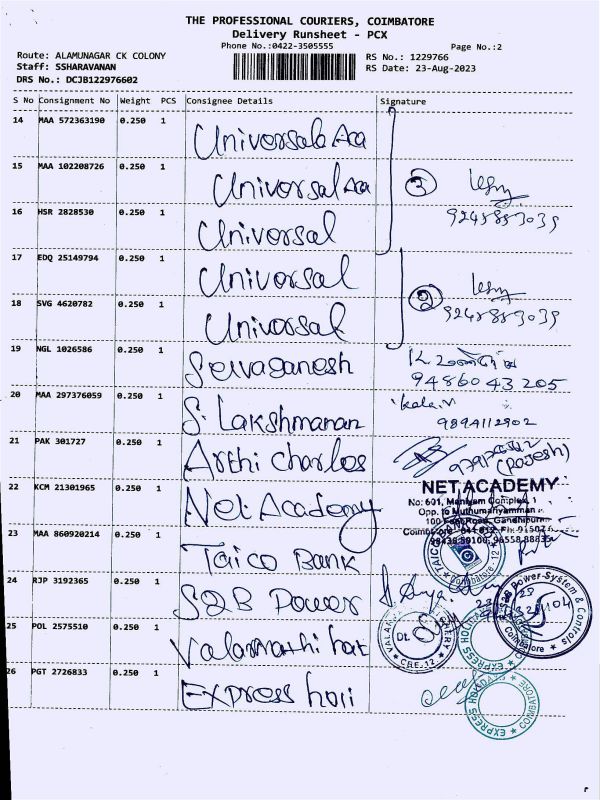 THE PROFESSIONAL COURIERS, COIMBATORE
Delivery Runsheet - PCX
Phone No.:0422-3505555
Page No.:2
Route: ALAMUNAGAR CK COLONY
Staff: SSHARAVANAN
DRS No.: DCJB122976602
RS No.: 1229766
RS Date: 23-Aug-2023
S No Consignment No Weight PCS Consignee Details Signature
14 MAA 572363190 0.250 1 Universal Aca
15 MAA 102208726 0.250 1 Universal Aca
3
9245889039
16 HSR 2828530 0.250 1 Universal
17 EDQ 25149794 0.250 1 Universal
2
9245889039
18 SVG 4620782 0.250 1 Universal
19 NGL 1026586 0.250 1 Selvaganesh
9486043205
20 MAA 297376059 0.250 1 S. Lakshmanan kala.V
9894112902
21 PAK 301727 0.250 1 Arthi Charles
(Rajesh)
22 KCM 21301965 0.250 1 Net Academy
NET ACADEMY
No: 601, Maniyam Complex, 1
Opp. to Muthumariyamman
100 Feet Road, Gandhipuram
23 MAA 860920214 0.250 1 Taico Bank
TAICO
Coimbatore 12
24 RJP 3192365 0.250 1 S2B Power
S2B Power-System & Controls
Coimbatore
25 POL 2575510 0.250 1 Valarmathi hat
VALAR
Dt.
CBE.12
EXPRESS HOLI
26 PGT 2726833 0.250 1 Express holi
EXPRESS HOLIDAYS
COIMBATORE